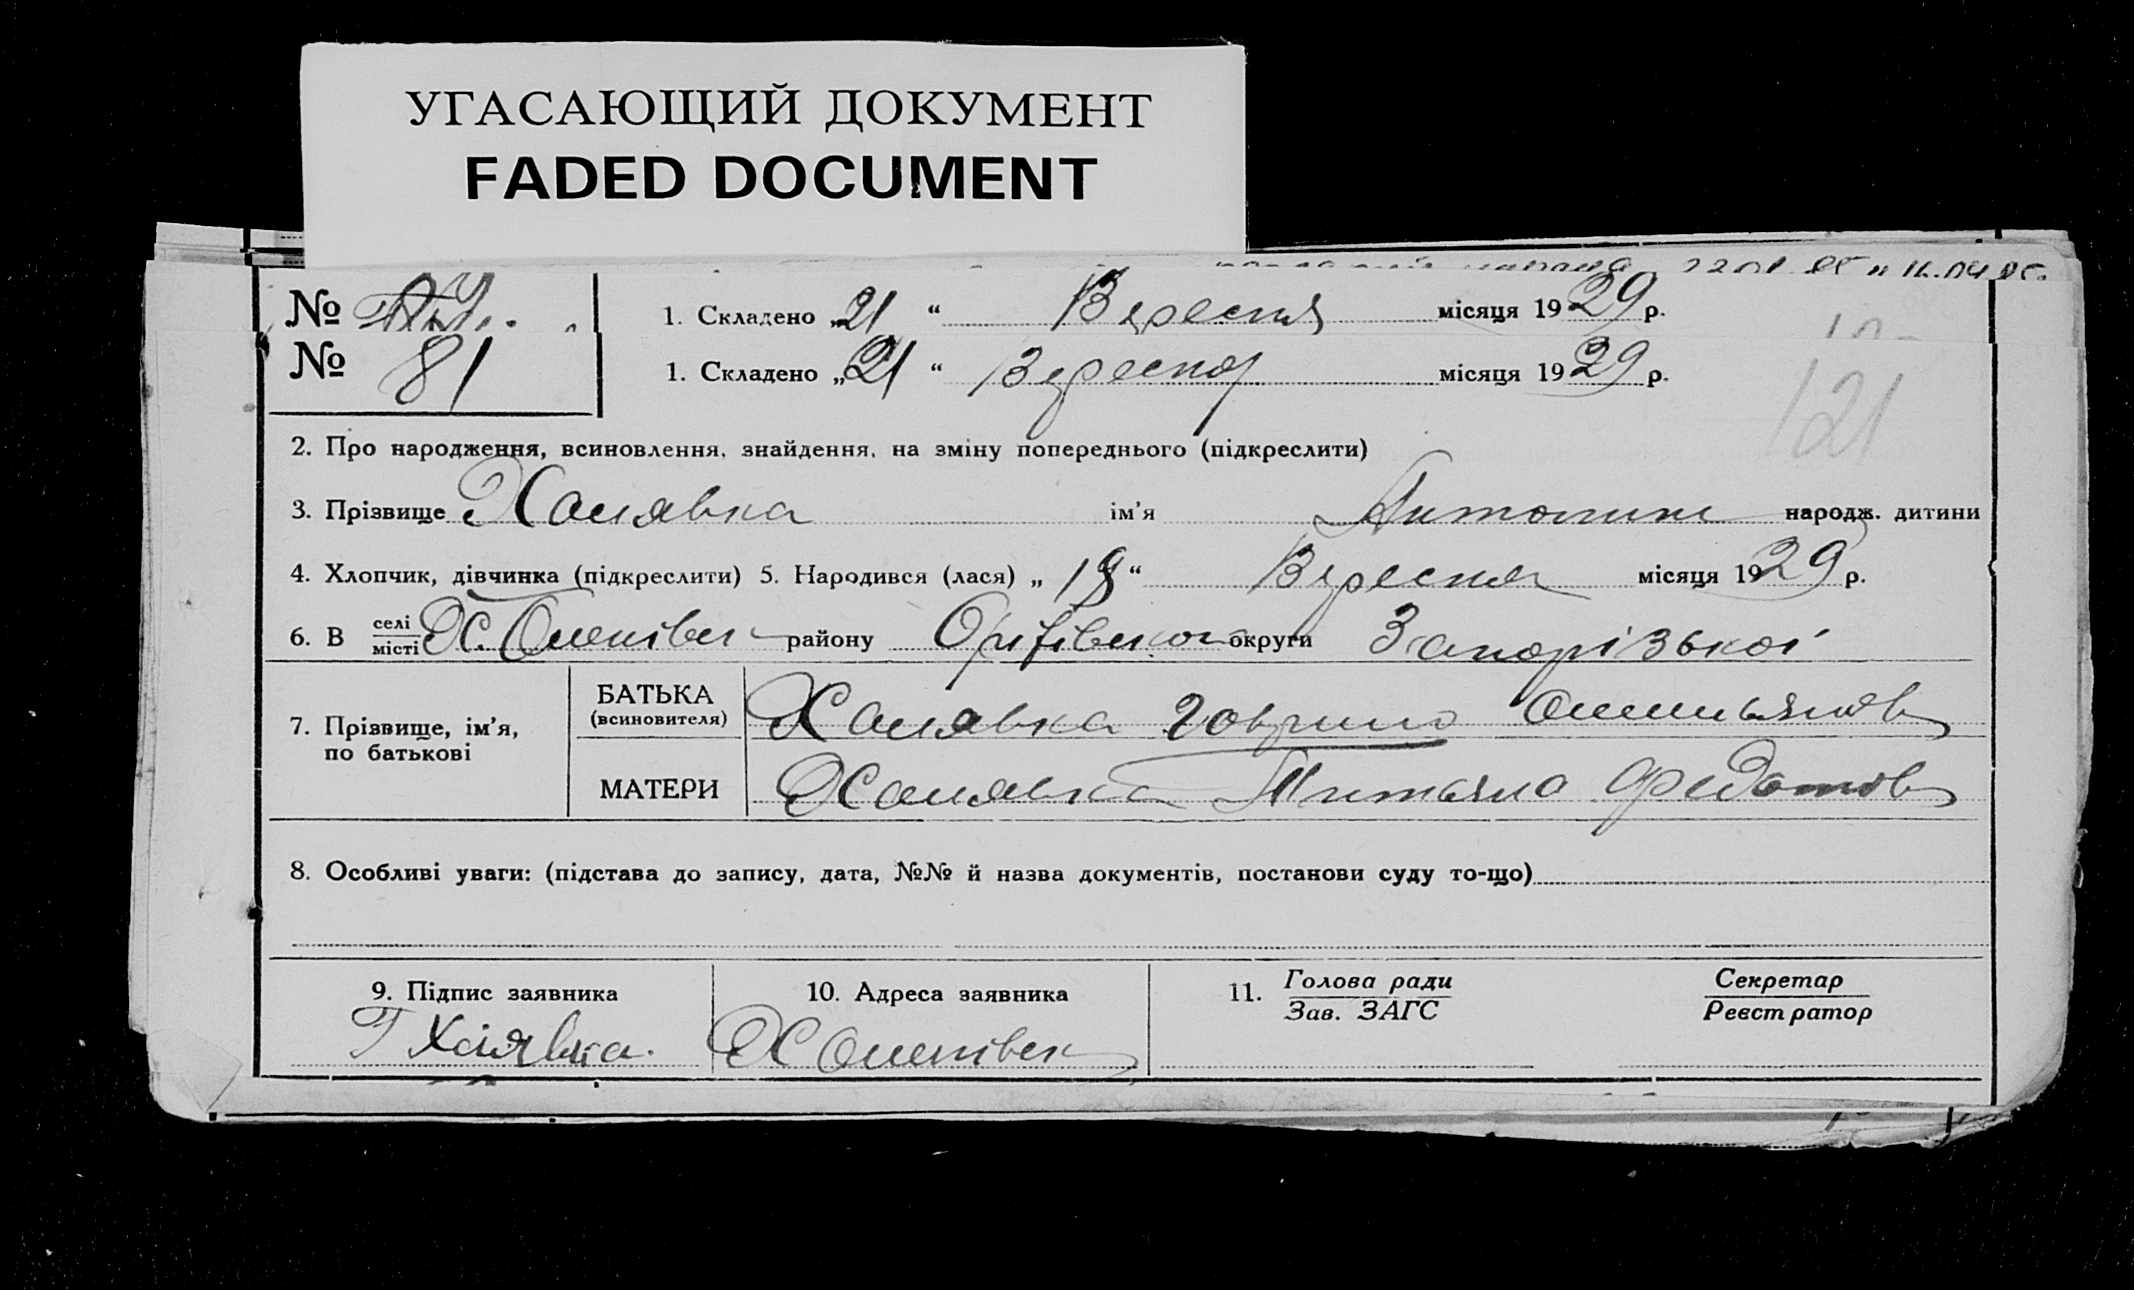 УГАСАЮЩИЙ ДОКУМЕНТ
FADED DOCUMENT
№ 1. Складено „21“ Вересня місяця 1929 р.
№ 81 1. Складено „21“ Вересня місяця 1929 р.
121
2. Про народження, всиновлення, знайдення, на зміну попереднього (підкреслити)
3. Прізвище Халявка ім'я Антонина народж. дитини
4. Хлопчик, дівчинка (підкреслити) 5. Народився (лася) „18“ Вересня місяця 1929 р.
6. В селі місті Х. району округи Запорізькоі
7. Прізвище, ім'я, по батькові
БАТЬКА (всиновителя) Халявка Гаврило
МАТЕРИ Халявка Титяна Федотов
8. Особливі уваги: (підстава до запису, дата, №№ й назва документів, постанови суду то-що)
9. Підпис заявника 10. Адреса заявника 11. Голова ради Зав. ЗАГС Секретар Реєстратор
Г Халявка. Х